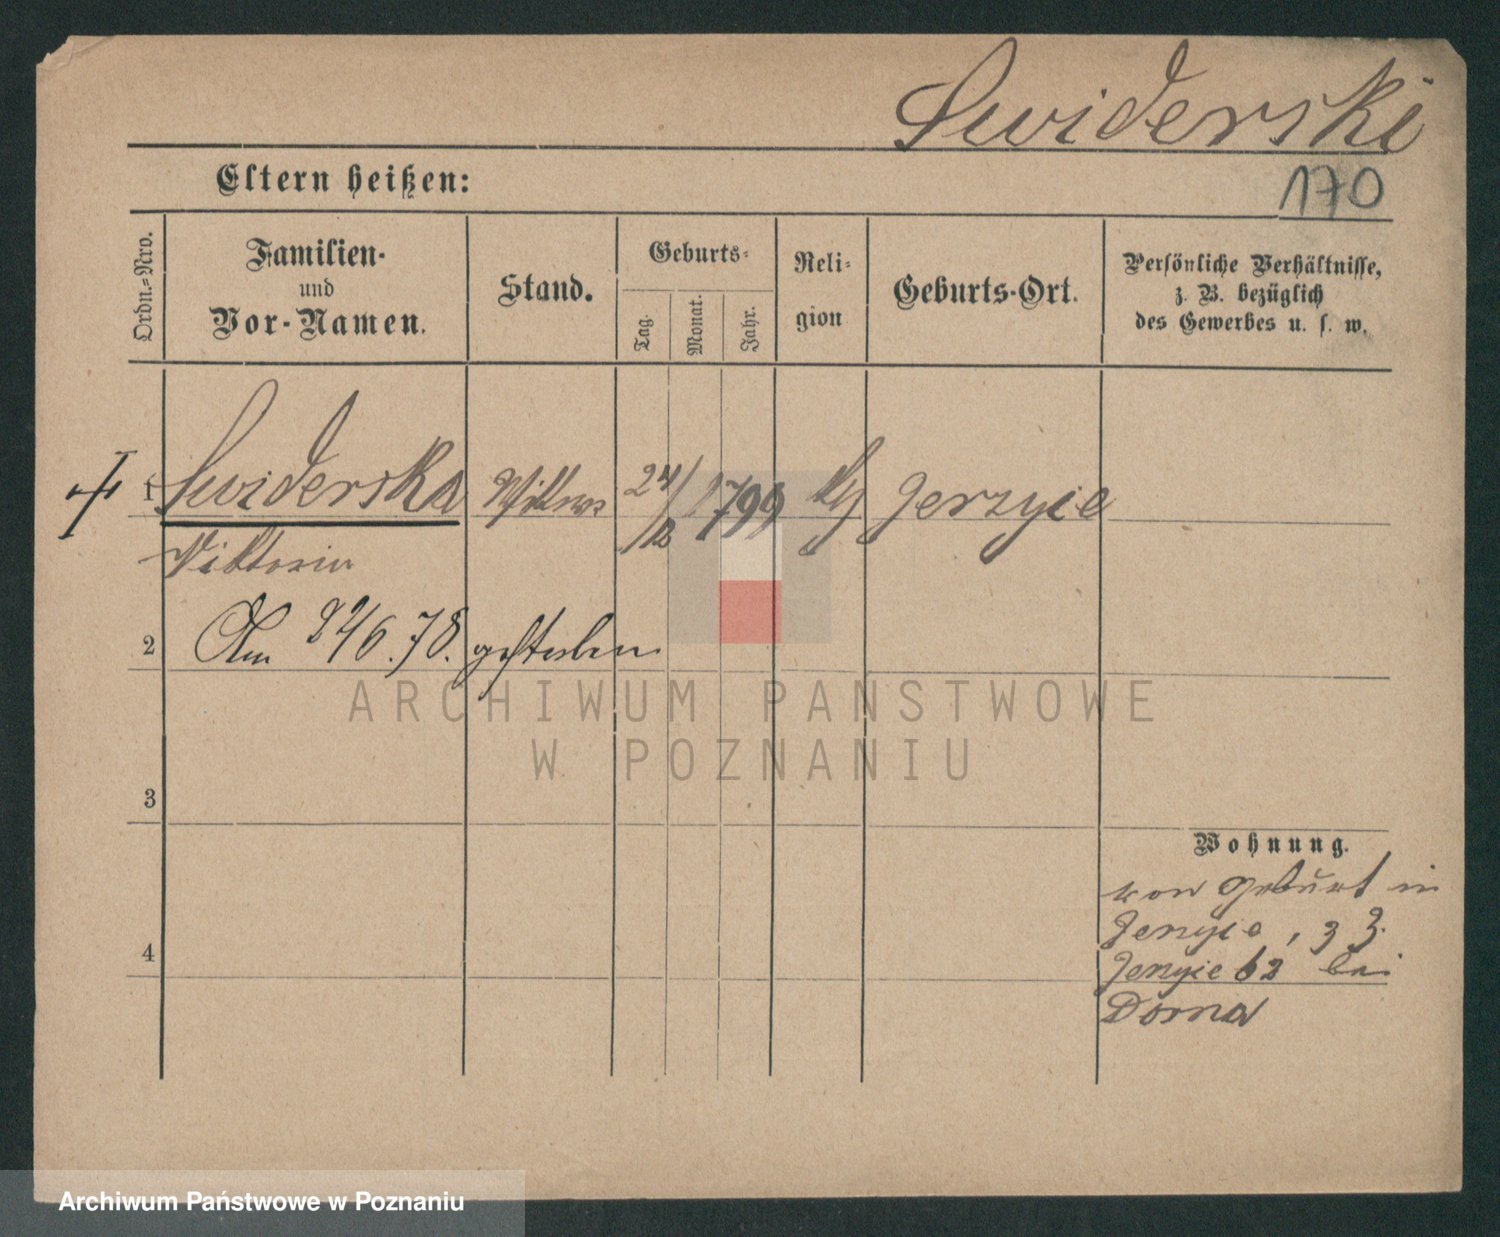 Swiderski
170
Eltern heißen:
Ordn.-Nro.
Familien-
und
Vor-Namen.
Stand.
Geburts-
Tag.
Monat.
Jahr.
Reli-
gion
Geburts-Ort.
Persönliche Verhältnisse,
z. B. bezüglich
des Gewerbes u. s. w.
1 Swiderska Wittwe 24/12 1799 Jerzyce
Viktoria
2 Am 24/6.78. gestorben
ARCHIWUM PANSTWOWE
W POZNANIU
3
Wohnung.
von Geburt in
Jerzyce, z Z.
4
Jerzyce 62 bei
Dorna
Archiwum Państwowe w Poznaniu